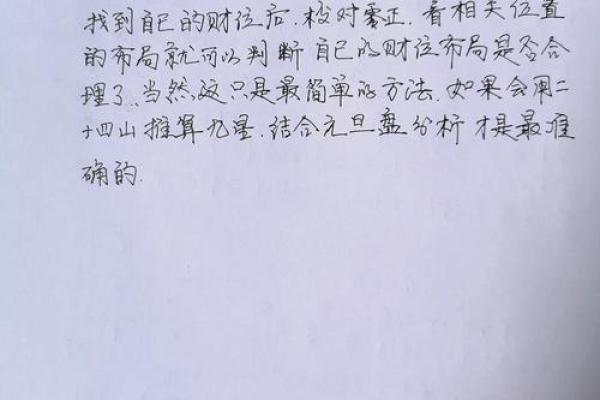 找到自己的财位后.核对零正.看相关位置
的布局就可以判断自己的财位布局是否合
理了.当然这只是最简单的方法.如果会用二
十四山推算九星.结合元旦盘分析才是最准
确的.